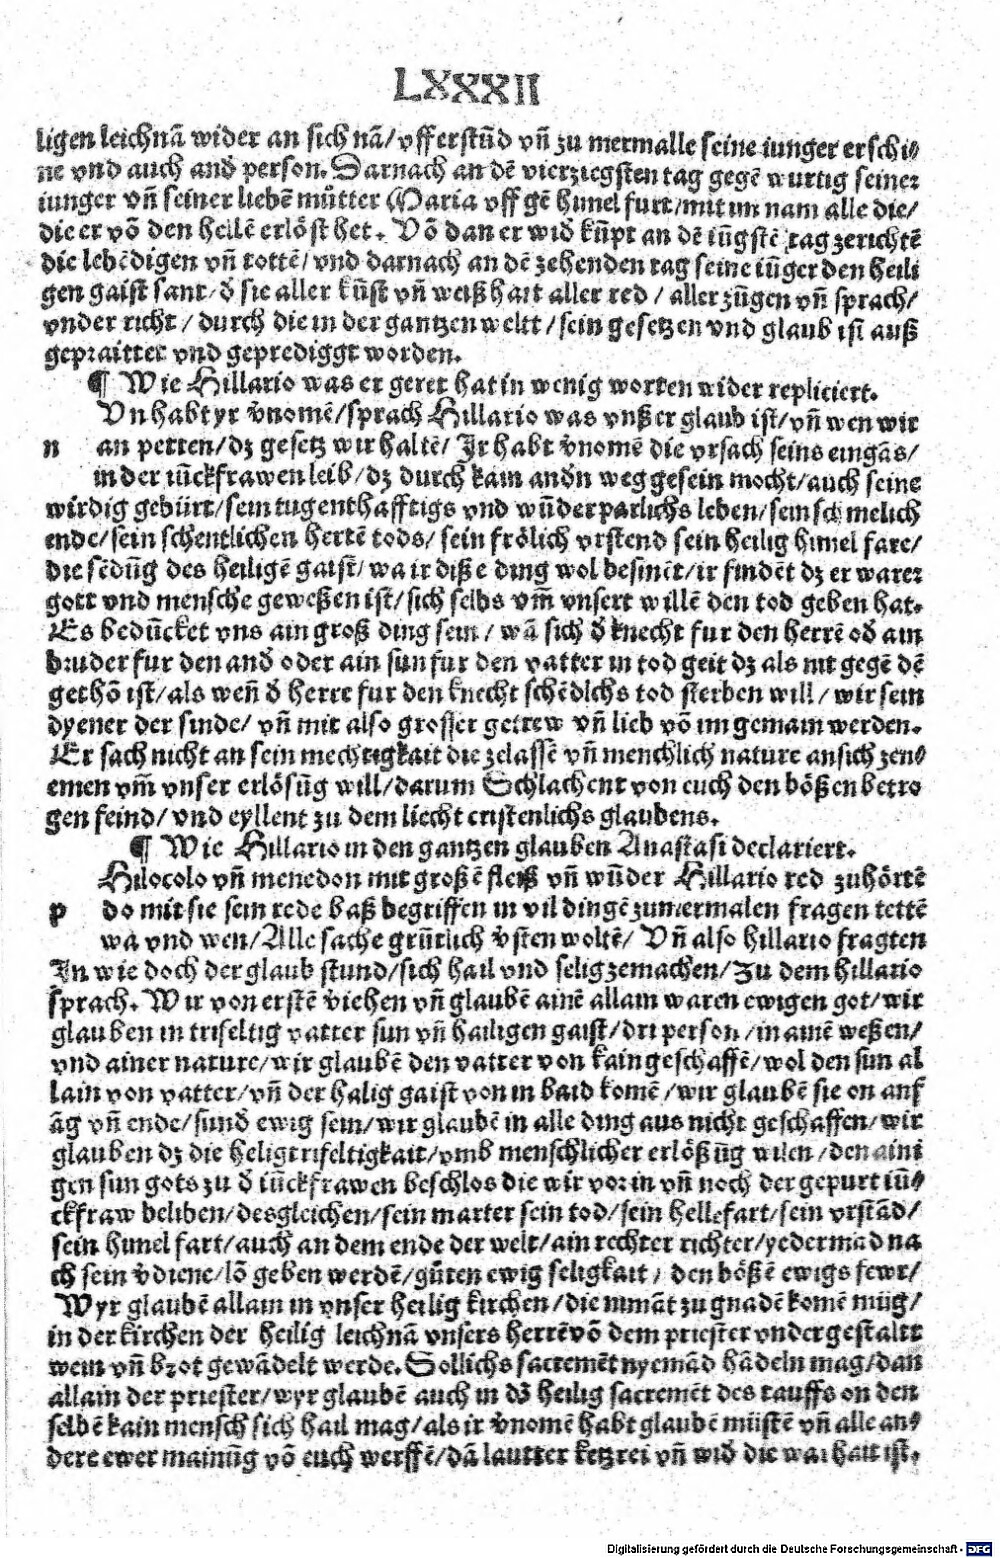 LXXXII
ligen leichnã wider an sich nã/vfferstũd vñ zu mermalle seine iunger erschi⸗
ne vnd auch and̄ person. Darnach an dẽ vierziegsten tag gegẽ wurtig seiner
iunger vñ seiner liebẽ můtter Maria vff gẽ himel furt/mit im nam alle die/
die er võ den hellẽ erlöst het. Võ dan er wid̄ kũpt an dẽ iũgstẽ tag zerichtẽ
die lebẽdigen vñ tottẽ/vnd darnach an dẽ zehenden tag seine iũger den heili
gen gaist sant/d̄ sie aller kũst vñ weißhait aller red/aller zũgen vñ sprach/
vnder richt/durch die in der gantzen weltt/sein gesetzen vnd glaub ist auß
gepraittet vnd gepredigget worden.
¶ Wie Hillario was er geret hat in wenig worten wider repliciert.
Vn habt yr v̄nomẽ/sprach Hillario was vnßer glaub ist/vñ wen wir
n an petten/dz gesetz wir haltẽ/Ir habt v̄nomẽ die vrsach seins eingãs/
in der iũckfrawen leib/dz durch kain and̄n weg gesein mocht/auch seine
wirdig gebürt/sein tugenthafftigs vnd wũderparlichs leben/sein schmelich
ende/sein schentlichen hertẽ tods/sein frölich vrstend sein heilig himel fare/
die sẽdũg des heiligẽ gaist/wa ir diße ding wol besinẽt/ir findẽt dz er warer
gott vnd mensche geweßen ist/sich selbs vm̃ vnsert willẽ den tod geben hat.
Es bedũcket vns ain groß ding sein/wã sich d̄ knecht fur den herrẽ od̄ ain
bruder fur den and̄ oder ain sun fur den vatter in tod geit dz als nit gegẽ dẽ
gethõ ist/als weñ d̄ herre fur den knecht schẽdlchs tod sterben will/wir sein
dyener der sinde/vñ mit also grosser getrew vñ lieb võ im gemain werden.
Er sach nicht an sein mechtigkait die zelassẽ vñ menchlich nature an sich zen⸗
emen vm̃ vnser erlösũg will/darum Schlachent von euch den bößen betro
gen feind/vnd eyllent zu dem liecht cristenlichs glaubens.
¶ Wie Hillario in den gantzen glauben Anastasi declariert.
Hilocolo vñ menedon mit großẽ fleiß vñ wũder Hillario red zuhörtẽ
p do mit sie sein rede baß begriffen in vil dingẽ zumermalen fragen tettẽ
wa vnd wen/Alle sache grũtlich v̄sten woltẽ/Vñ also hillario fragten
In wie doch der glaub stund/sich hail vnd selig zemachen/Zu dem hillario
sprach. Wir von erstẽ v̄iehen vñ glaubẽ ainẽ allain waren ewigen got/wir
glauben in trifeltig vatter sun vñ hailigen gaist/dri person/in ainẽ weßen/
vnd ainer nature/wir glaubẽ den vatter von kain geschaffẽ/wol den sun al
lain von vatter/vñ der halig gaist von in baid komẽ/wir glaubẽ sie on anf
ãg vñ ende/sund̄ ewig sein/wir glaubẽ in alle ding aus nicht geschaffen/wir
glauben dz die heligtrifeltigkait/vmb menschlicher erlößũg wilen/den aini
gen sun gots zu d̄ iũckfrawen beschlos die wir vor in vñ noch der gepurt iũ⸗
ckfraw beliben/desgleichen/sein marter sein tod/sein hellefart/sein vrstãd/
sein himel fart/auch an dem ende der welt/ain rechter richter/yederman na
ch sein v̄diene/lõ geben werdẽ/gũten ewig seligkait/den bößẽ ewigs fewr/
Wyr glaubẽ allain in vnser heilig kirchen/die nimãt zu gnadẽ komẽ müg/
in der kirchen der heilig leichnã vnsers herrẽ võ dem priester vnder gestaltt
wein vñ brot gewãdelt werde. Sollichs sacremẽt nyemãd hãdeln mag/dan
allain der priester/wyr glaubẽ auch in dz̄ heilig sacremẽt des tauffs on den
selbẽ kain mensch sich hail mag/als ir v̄nomẽ habt glaubẽ müstẽ vñ alle an⸗
dere ewer mainũg võ euch werffẽ/dã lautter ketzrei vñ wid̄ die warhait ist.
Digitalisierung gefördert durch die Deutsche Forschungsgemeinschaft - DFG